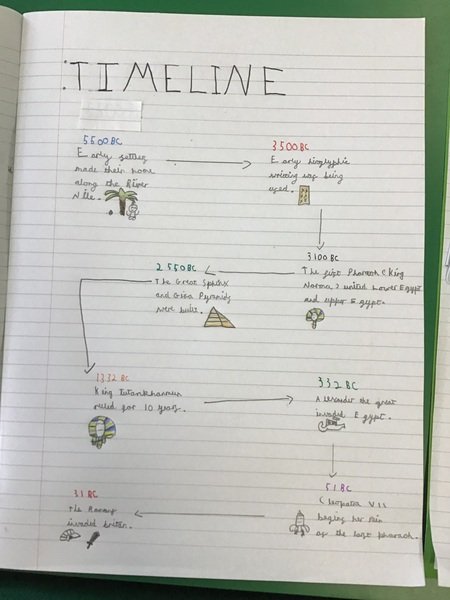 TIMELINE
5500 BC
Early settles
made their home
along the River
Nile.
3500 BC
Early hieglyphic
writing was being
used.
3100 BC
The first Pharaoh ( King
Narma, ) united Lower Egypt
and upper Egypt.
2550 BC
The Great Sphinx
and Giza Pyramids
were built.
1332 BC
King Tutankhamun
ruled for 10 years.
332 BC
Alexander the great
invaded Egypt.
51 BC
Cleopatra VII
begins her
as the last pharaoh.
31 BC
the Romans
invaded